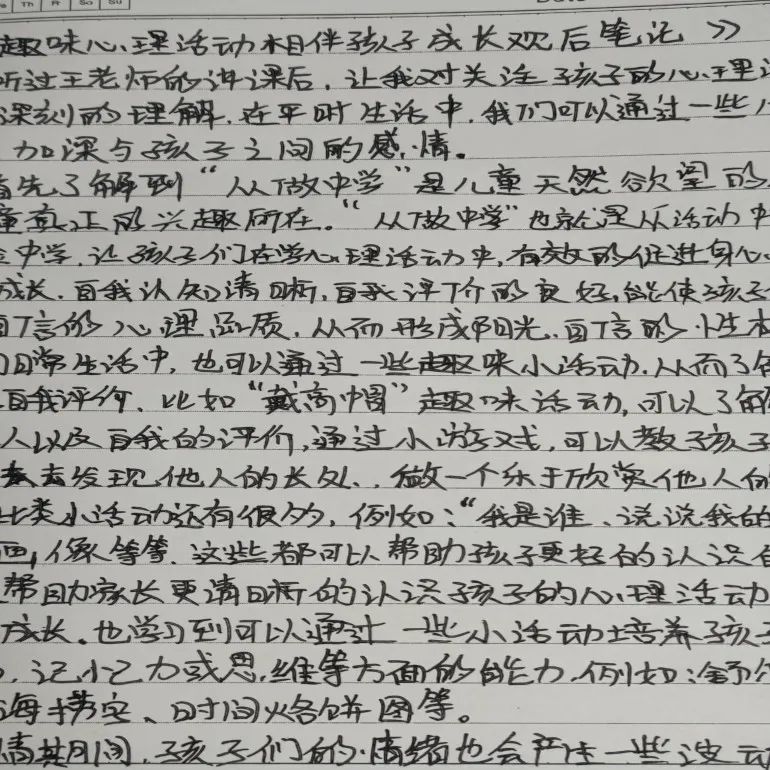 Th Fr Sa Su
趣味心理活动相伴孩子成长观后笔记》
听过王老师的讲课后，让我对关注孩子的心理
深刻的理解，在平时生活中，我们可以通过一些小
加深与孩子之间的感情。
首先了解到“从做中学”是儿童天然欲望的
童真正的兴趣所在。“从做中学”也就是从活动中
中学，让孩子们在学心理活动中，有效的促进身心
成长，自我认知清晰，自我评价的良好，能使孩子
自信的心理品质，从而形成阳光、自信的性格
日常生活中，也可以通过一些趣味小活动，从而了解
自我评价、比如“戴高帽”趣味活动，可以了解
人以及自我的评价，通过小游戏，可以教孩子
去发现他人的长处，做一个乐于欣赏他人的
此类小活动还有很多，例如：“我是谁、说说我的
画像等等，这些都可以帮助孩子更好的认识自
帮助家长更清晰的认识孩子的心理活动
成长，也学习到可以通过一些小活动培养孩子
记忆力或思维等方面的能力，例如：舒尔
海捞宝、时间烙饼图等。
情期间，孩子们的情绪也会产生一些波动